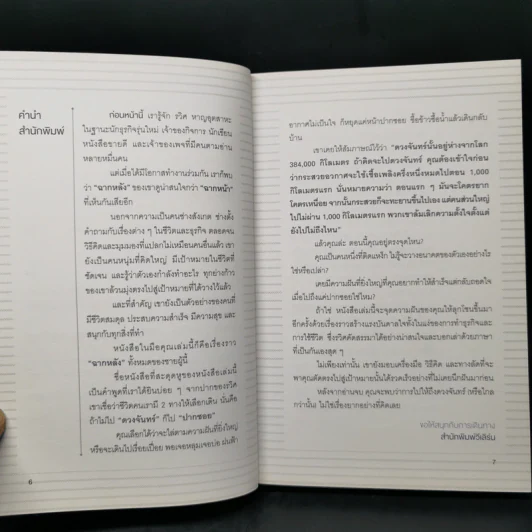 คำนำ
สำนักพิมพ์
ก่อนหน้านี้ เรารู้จัก รวิศ หาญอุตสาหะ
ในฐานะนักธุรกิจรุ่นใหม่ เจ้าของกิจการ นักเขียน
หนังสือขายดี และเจ้าของเพจที่มีคนตามอ่าน
หลายหมื่นคน
แต่เมื่อได้มีโอกาสทำงานร่วมกัน เราก็พบ
ว่า "ฉากหลัง" ของเขาดูน่าสนใจกว่า "ฉากหน้า"
ที่เห็นกันเสียอีก
นอกจากความเป็นคนช่างสังเกต ช่างตั้ง
คำถามกับเรื่องต่าง ๆ ในชีวิตและธุรกิจ ตลอดจน
วิธีคิดและมุมมองที่แปลกไม่เหมือนคนอื่นแล้ว เขา
ยังเป็นคนหนุ่มที่คิดใหญ่ มีเป้าหมายในชีวิตที่
ชัดเจน และรู้ว่าตัวเองกำลังทำอะไร ทุกย่างก้าว
ของเขาล้วนมุ่งตรงไปสู่เป้าหมายที่ได้วางไว้แล้ว
และที่สำคัญ เขายังเป็นตัวอย่างของคนที่
มีชีวิตสมดุล ประสบความสำเร็จ มีความสุข และ
สนุกกับทุกสิ่งที่ทำ
หนังสือในมือคุณเล่มนี้ก็คือเรื่องราว
"ฉากหลัง" ทั้งหมดของชายผู้นี้
ชื่อหนังสือที่สะดุดหูของหนังสือเล่มนี้
เป็นคำพูดที่เราได้ยินบ่อย ๆ จากปากของรวิศ
เขาเชื่อว่าชีวิตคนเรามี 2 ทางให้เลือกเดิน นั่นคือ
ถ้าไม่ไป "ดวงจันทร์" ก็ไป "ปากซอย"
คุณเลือกได้ว่าจะไล่ตามความฝันที่ยิ่งใหญ่
หรือจะเดินไปเรื่อยเปื่อย พอเจอหลุมเจอบ่อ ฝนฟ้า
6
อากาศไม่เป็นใจ ก็หยุดแค่หน้าปากซอย ซื้อข้าวซื้อน้ำแล้วเดินกลับ
บ้าน
เขาเคยให้สัมภาษณ์ไว้ว่า "ดวงจันทร์นั้นอยู่ห่างจากโลก
384,000 กิโลเมตร ถ้าคิดจะไปดวงจันทร์ คุณต้องเข้าใจก่อน
ว่ากระสวยอวกาศจะใช้เชื้อเพลิงครึ่งหนึ่งหมดไปตอน 1,000
กิโลเมตรแรก นั่นหมายความว่า ตอนแรก ๆ มันจะโคตรยาก
โคตรเหนื่อย จากนั้นกระสวยก็จะทะยานขึ้นไปเอง แต่คนส่วนใหญ่
ไปไม่ผ่าน 1,000 กิโลเมตรแรก พวกเขาล้มเลิกความตั้งใจตั้งแต่
ยังไปไม่ถึงไหน"
แล้วคุณล่ะ ตอนนี้คุณอยู่ตรงจุดไหน?
คุณเป็นคนหนึ่งที่คิดแหงัก ไม่รู้จะวางอนาคตของตัวเองอย่างไร
ใช่หรือเปล่า?
เคยมีความฝันที่ยิ่งใหญ่ที่คุณอยากทำให้สำเร็จแต่กลับถอดใจ
เมื่อไปถึงแค่ปากซอยใช่ไหม?
ถ้าใช่ หนังสือเล่มนี้จะจุดความฝันของคุณให้ลุกโชนขึ้นมา
อีกครั้งด้วยเรื่องราวสร้างแรงบันดาลใจทั้งในแง่ของการทำธุรกิจและ
การใช้ชีวิต ซึ่งรวิศคัดสรรมาได้อย่างน่าสนใจและบอกเล่าด้วยภาษา
ที่เป็นกันเองสุด ๆ
ไม่เพียงเท่านั้น เขายังมอบเครื่องมือ วิธีคิด และทางลัดที่จะ
พาคุณดีดตรงไปสู่เป้าหมายนั้นได้รวดเร็วอย่างที่ไม่เคยนึกฝันมาก่อน
หลังจากอ่านจบ คุณจะพบว่าการไปให้ถึงดวงจันทร์ หรือไกล
กว่านั้น ไม่ใช่เรื่องยากอย่างที่คิดเลย
ขอให้สนุกกับการเดินทาง
สำนักพิมพ์วีเลิร์น
7